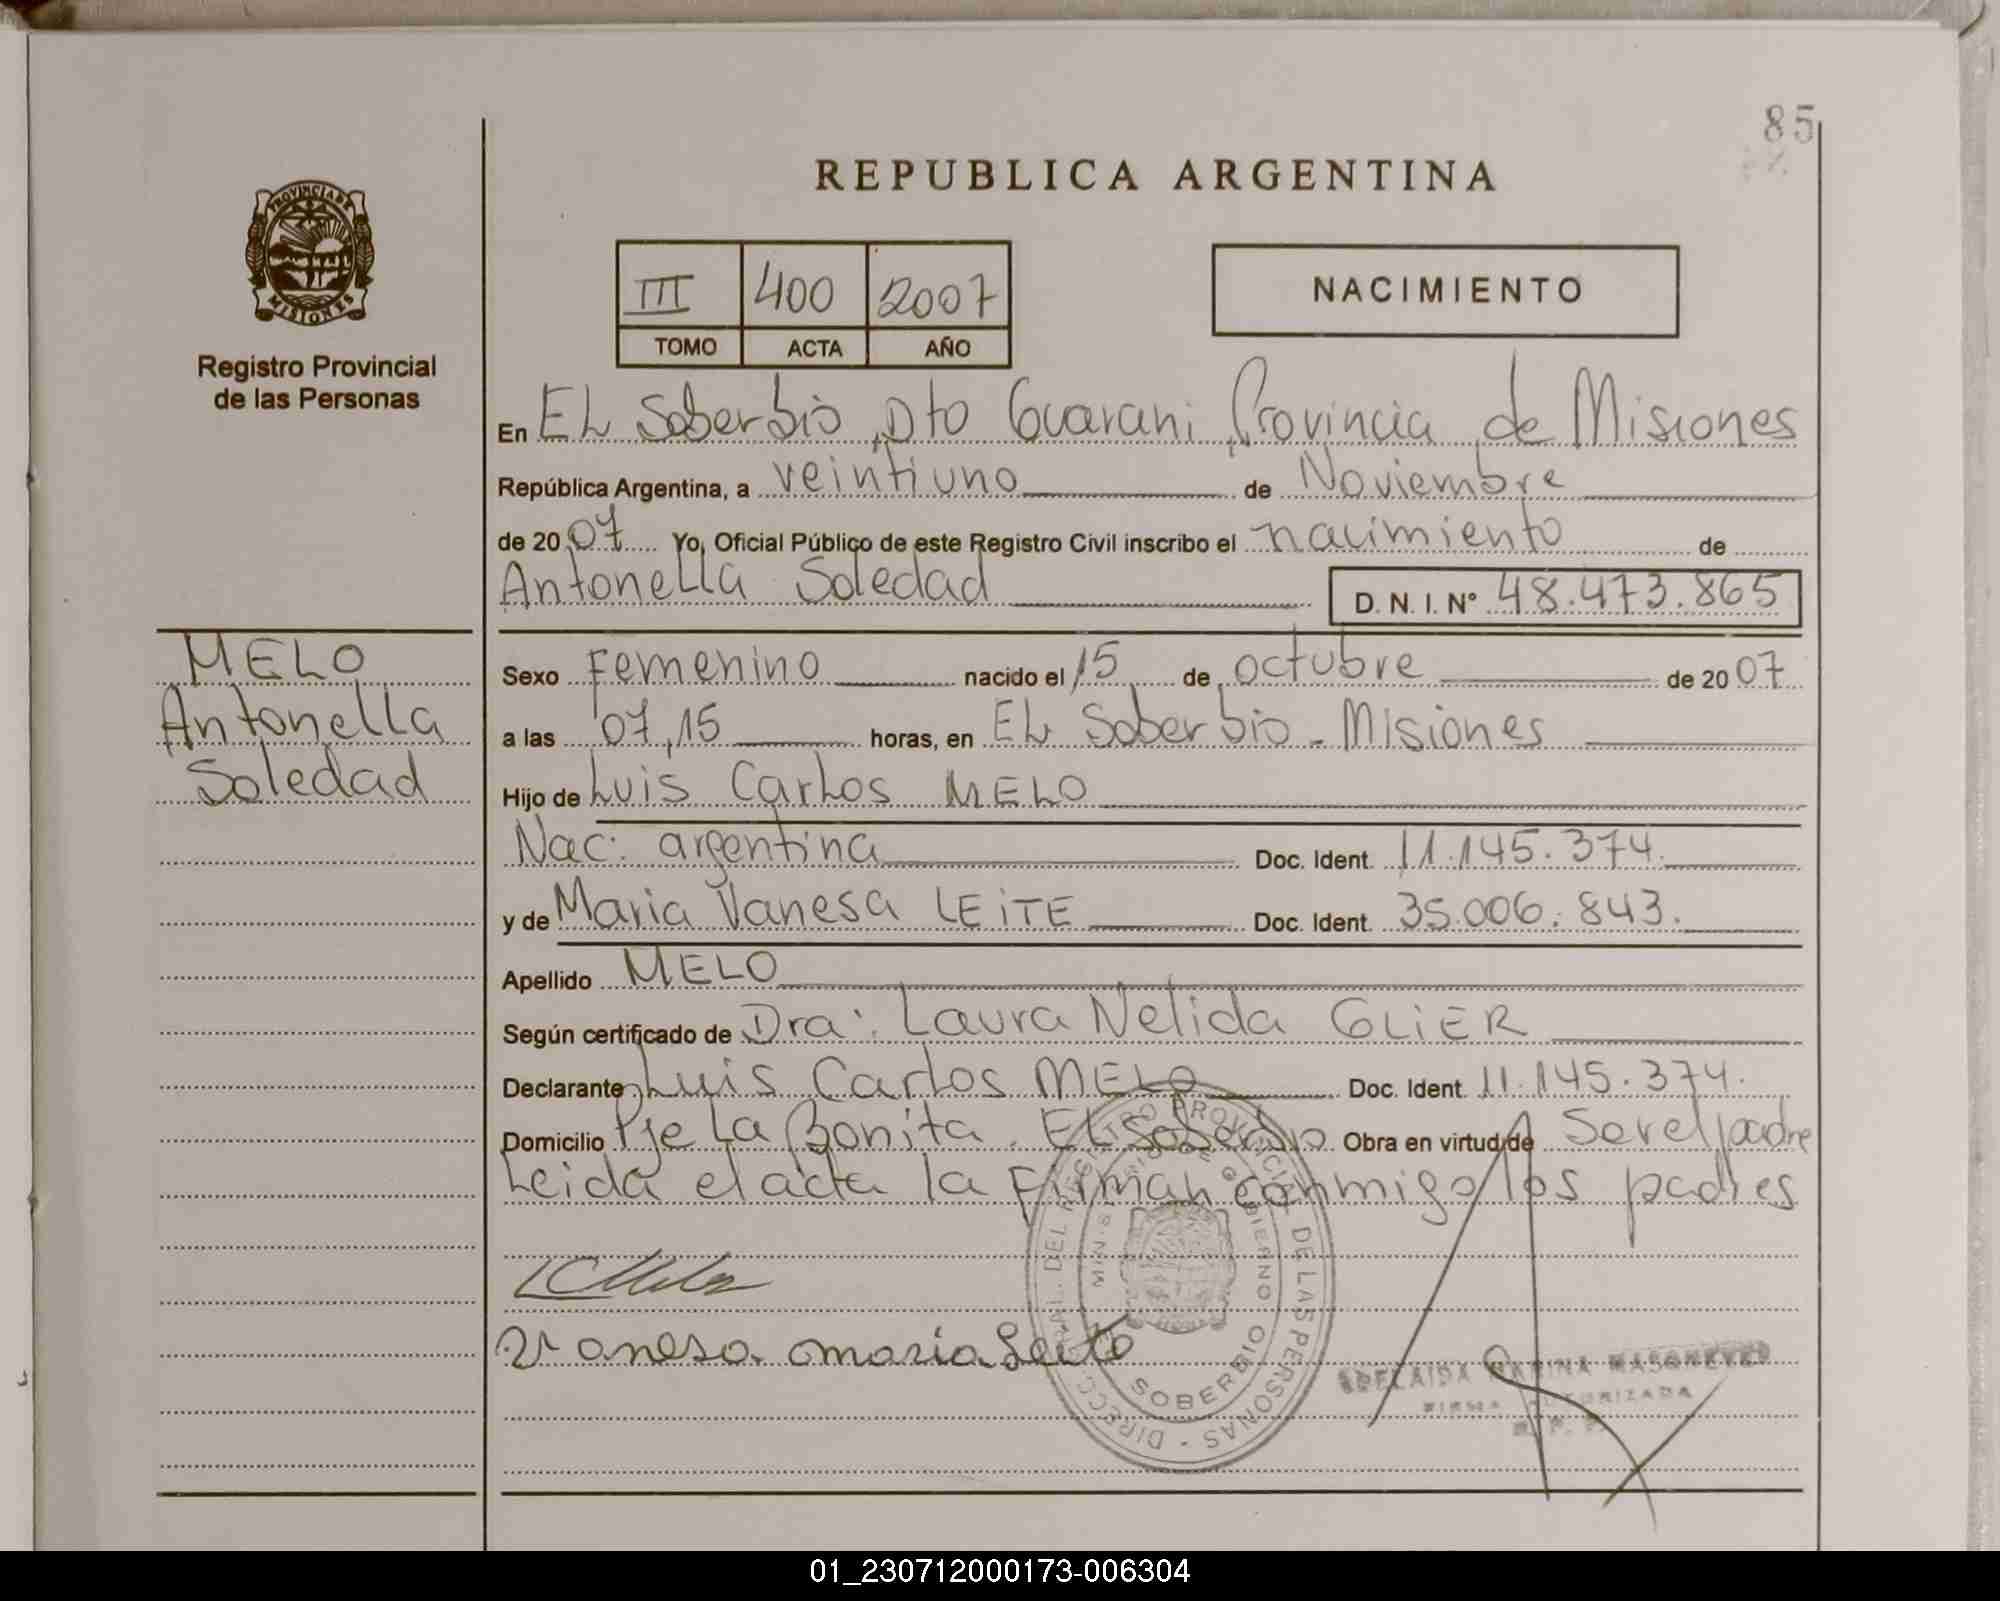 85
REPUBLICA ARGENTINA
PROVINCIA DE
MISIONES
Registro Provincial
de las Personas
III 400 2007
TOMO ACTA AÑO
NACIMIENTO
En EL Soberbio, Dto Guarani, Provincia de Misiones
República Argentina, a veintiuno de Noviembre
de 2007 Yo, Oficial Público de este Registro Civil inscribo el nacimiento de
Antonella Soledad D. N. I. N° 48.473.865
MELO
Antonella
Soledad
Sexo Femenino nacido el 15 de octubre de 2007
a las 07,15 horas, en EL Soberbio - Misiones
Hijo de Luis Carlos MELO
Nac: argentina Doc. Ident. 11.145.374.
y de Maria Vanesa LEiTE Doc. Ident. 35.006.843.
Apellido MELO
Según certificado de Dra: Laura Nelida GLiER
Declarante Luis Carlos MELO Doc. Ident. 11.145.374.
Domicilio Pje La Bonita. EL Soberbio Obra en virtud de Ser el padre
Leida el acta la Firman conmigo los padres
LCMelo
Vanesa maria Leite
DIRECC. GRAL. DEL REGISTRO PROVINCIAL DE LAS PERSONAS
MINISTERIO DE GOBIERNO
SOBERBIO
ADELAIDA MARINA
FIRMA AUTORIZADA
01_230712000173-006304